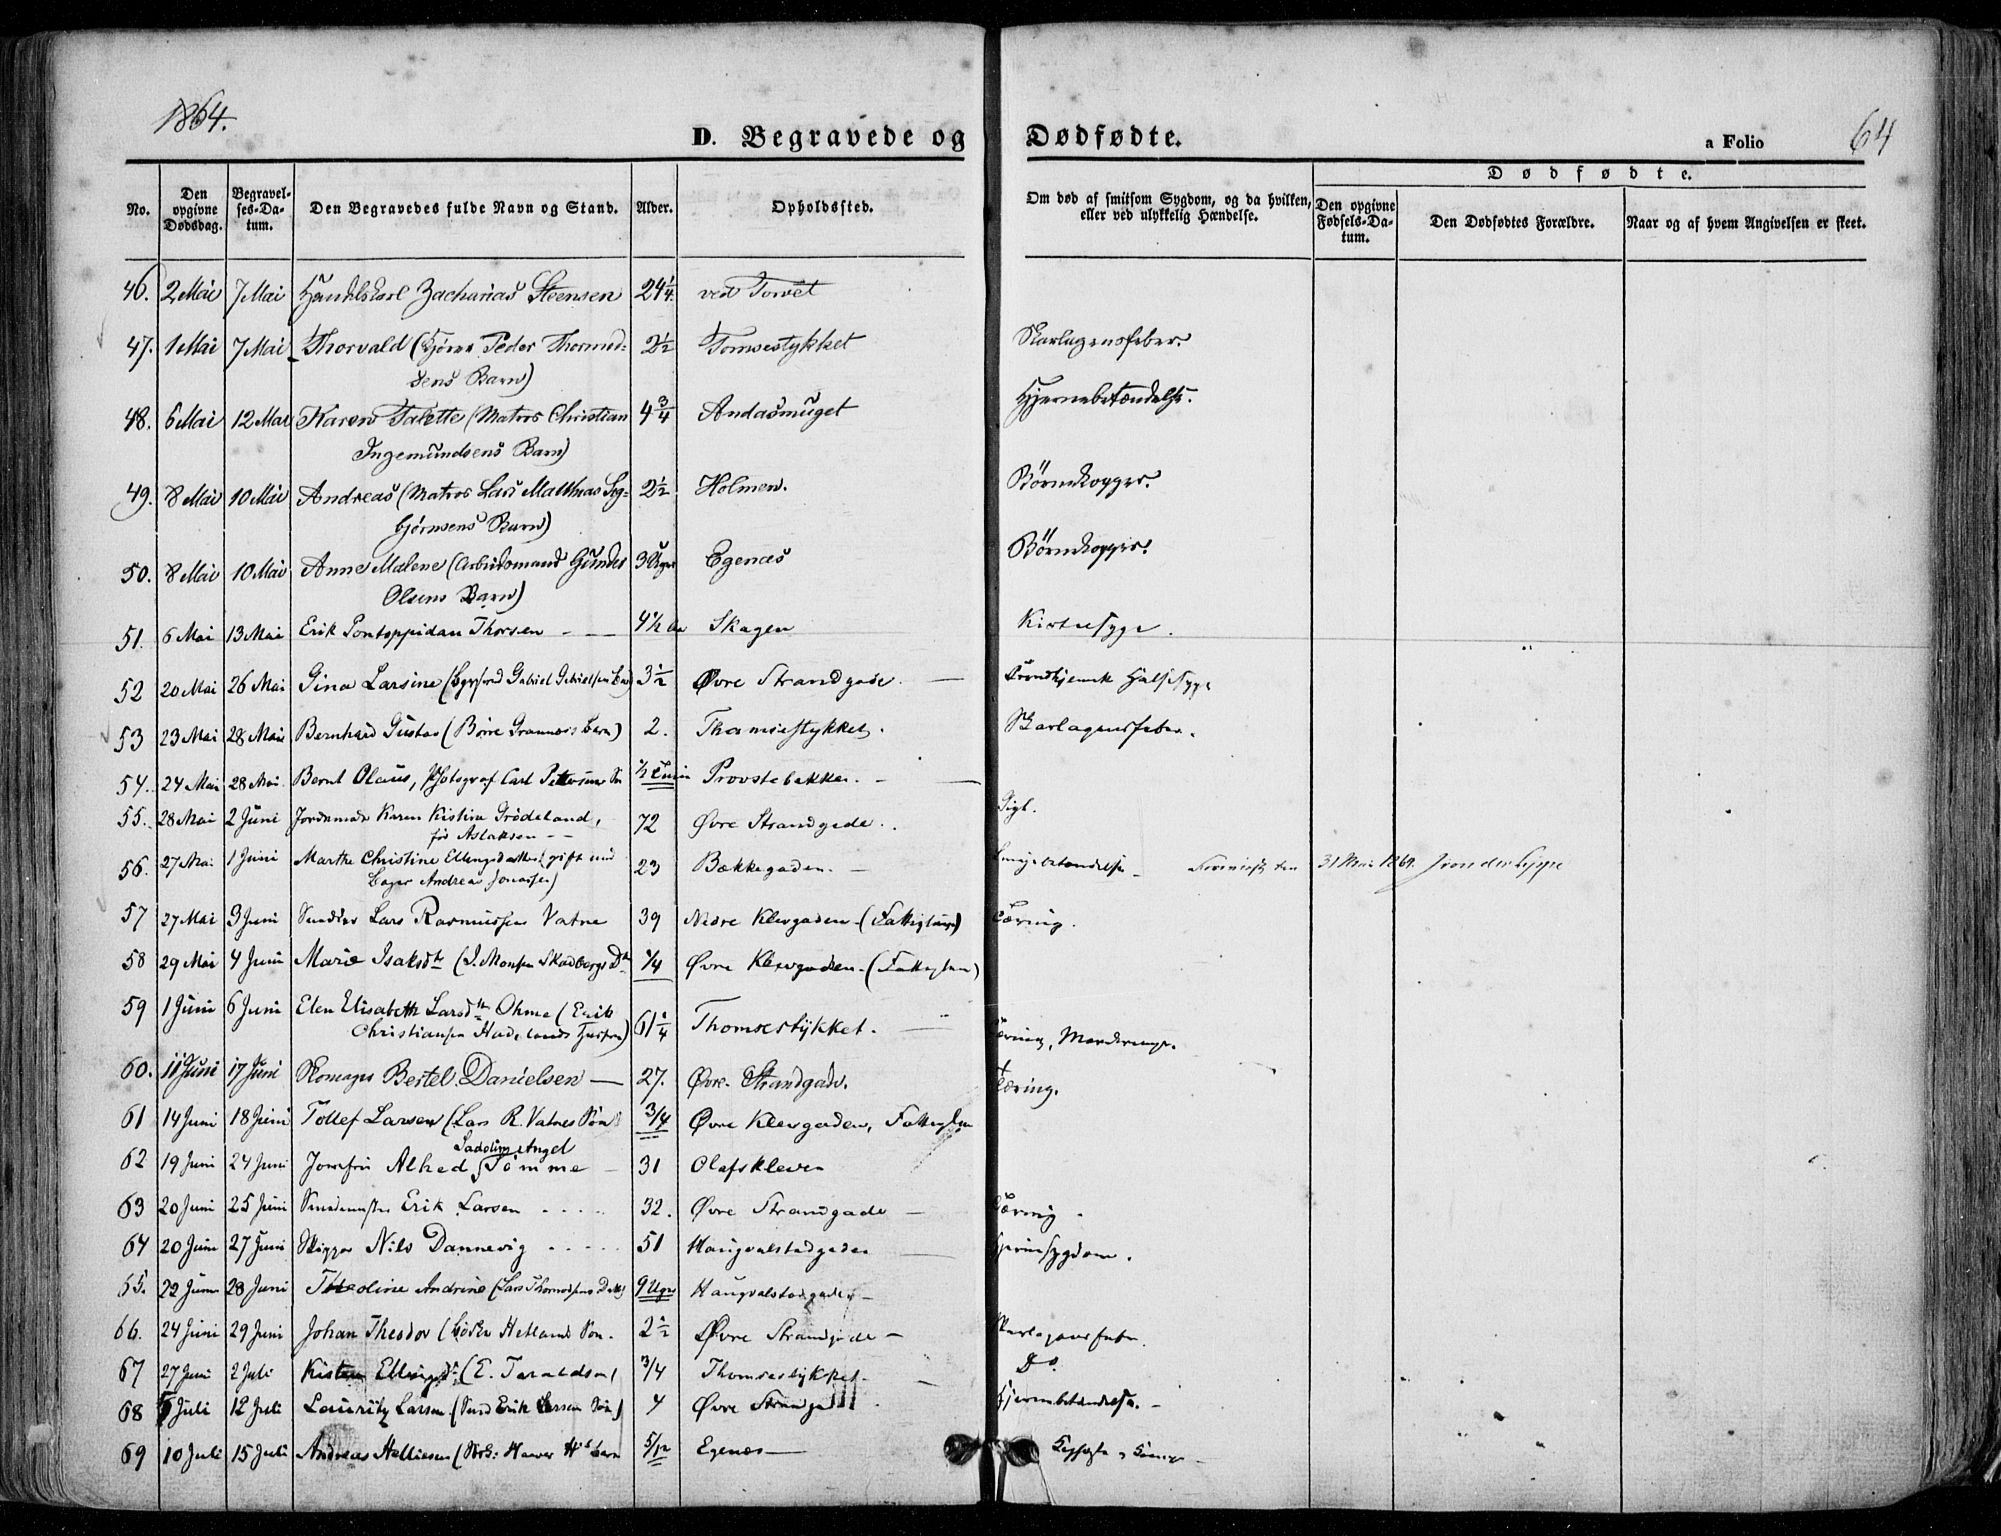 1864.
D. Begravede og Dødfødte.
a Folio 64
No. Den opgivne Dødsdag. Begravelses-Datum. Den Begravedes fulde Navn og Stand. Alder. Opholdssted. Om død af smitsom Sygdom, og da hvilken, eller ved ulykkelig Hændelse. Dødfødte. Den opgivne Fødsels-Datum. Den Dødfødtes Forældre. Naar og af hvem Angivelsen er skeet.
46. 2 Mai 7 Mai Handelskarl Zacharias Steensen 24 1/4 ved Torvet
47. 1 Mai 7 Mai Thorvald (Peder Thormod- 2 1/2 Tomsestykket Skarlagensfeber.
sens Barn)
48. 6 Mai 12 Mai Karen Talette (Matros Christian 4 3/4 Andasmuget Hjernebetændelse.
Ingemundsens Barn)
49. 8 Mai 10 Mai Andreas (Matros Lars Matthias Seg- 2 1/2 Holmen. Børnekopper.
bjørnsens Barn)
50. 8 Mai 10 Mai Anne Malene (Arbeidsmand Gunder 3 Uger Egenæs Børnekopper.
Olsens Barn)
51. 6 Mai 13 Mai Erik Pontoppidan Thorsen - - 4 1/2 Skagen Kirtelsyge.
52 20 Mai 26 Mai Gina Larsine (Gabriel Gabrielsen) 3 1/2 Øvre Strandgade. Halssyge
53 23 Mai 28 Mai Bernhard Gustav (Børre Barn) 2. Thomsestykket. Skarlagensfeber.
54. 24 Mai 28 Mai Bernt Olaus, Photograf Carl Pettersens Søn 1/2 Provstebakken.
55. 28 Mai 2 Juni Jordemoder Karen Kistine Grødeland, 72 Øvre Strandgade. Gigt.
fød Aslaksen
56. 27 Mai 1 Juni Marthe Christine Ellingsdatter (gift med 23 Bækkegaden. 31 Mai 1864
Bager Andreas Jonassen)
57 27 Mai 3 Juni Lars Rasmussen Vatne 39 Nedre Klevgaden (Fattiglem) Tæring.
58 29 Mai 4 Juni Marie Isaksdtr (I. Monsen Skadbergs Dtr 1/4 Øvre Klevgaden (Fattiglem)
59 1 Juni 6 Juni Elen Elisabeth Larsdtr Ohme (Erik 61 1/4 Thomsestykket. Tæring,
Christiansen Hadelands Hustru)
60. 11 Juni 17 Juni Skomager Bertel Danielsen 27. Øvre Strandgade. Tæring.
61 14 Juni 18 Juni Tollef Larsen (Lars R. Vatnes Søn 3/4 Øvre Klevgaden, Fattiglem
62 19 Juni 24 Juni Jomfru Alhed Sadolin Angel Tømme 31 Olafskleven
63 20 Juni 25 Juni Erik Larsen 32. Øvre Strandgade Tæring
64 20 Juni 27 Juni Skipper Nils Dannevig 51 Haugvalstadgaden
65. 22 Juni 28 Juni Theoline Andrine (Lars Thormodsens Datter) 9 Uger Haugvalstadgaden
66. 24 Juni 29 Juni Johan Theodor (Hetlands Søn. 2 1/2 Øvre Strandgade Skarlagensfeber.
67 27 Juni 2 Juli Kisten Ellingsdtr (E. Taraldsen) 3/4 Thomsestykket Do.
68 5 Juli 12 Juli Lauritz Larsen (Erik Larsen Søn) 4 Øvre Strandgade Hjernebetændelse.
69 10 Juli 15 Juli Andreas Helliesen (Haver Barn 5/12 Egenæs